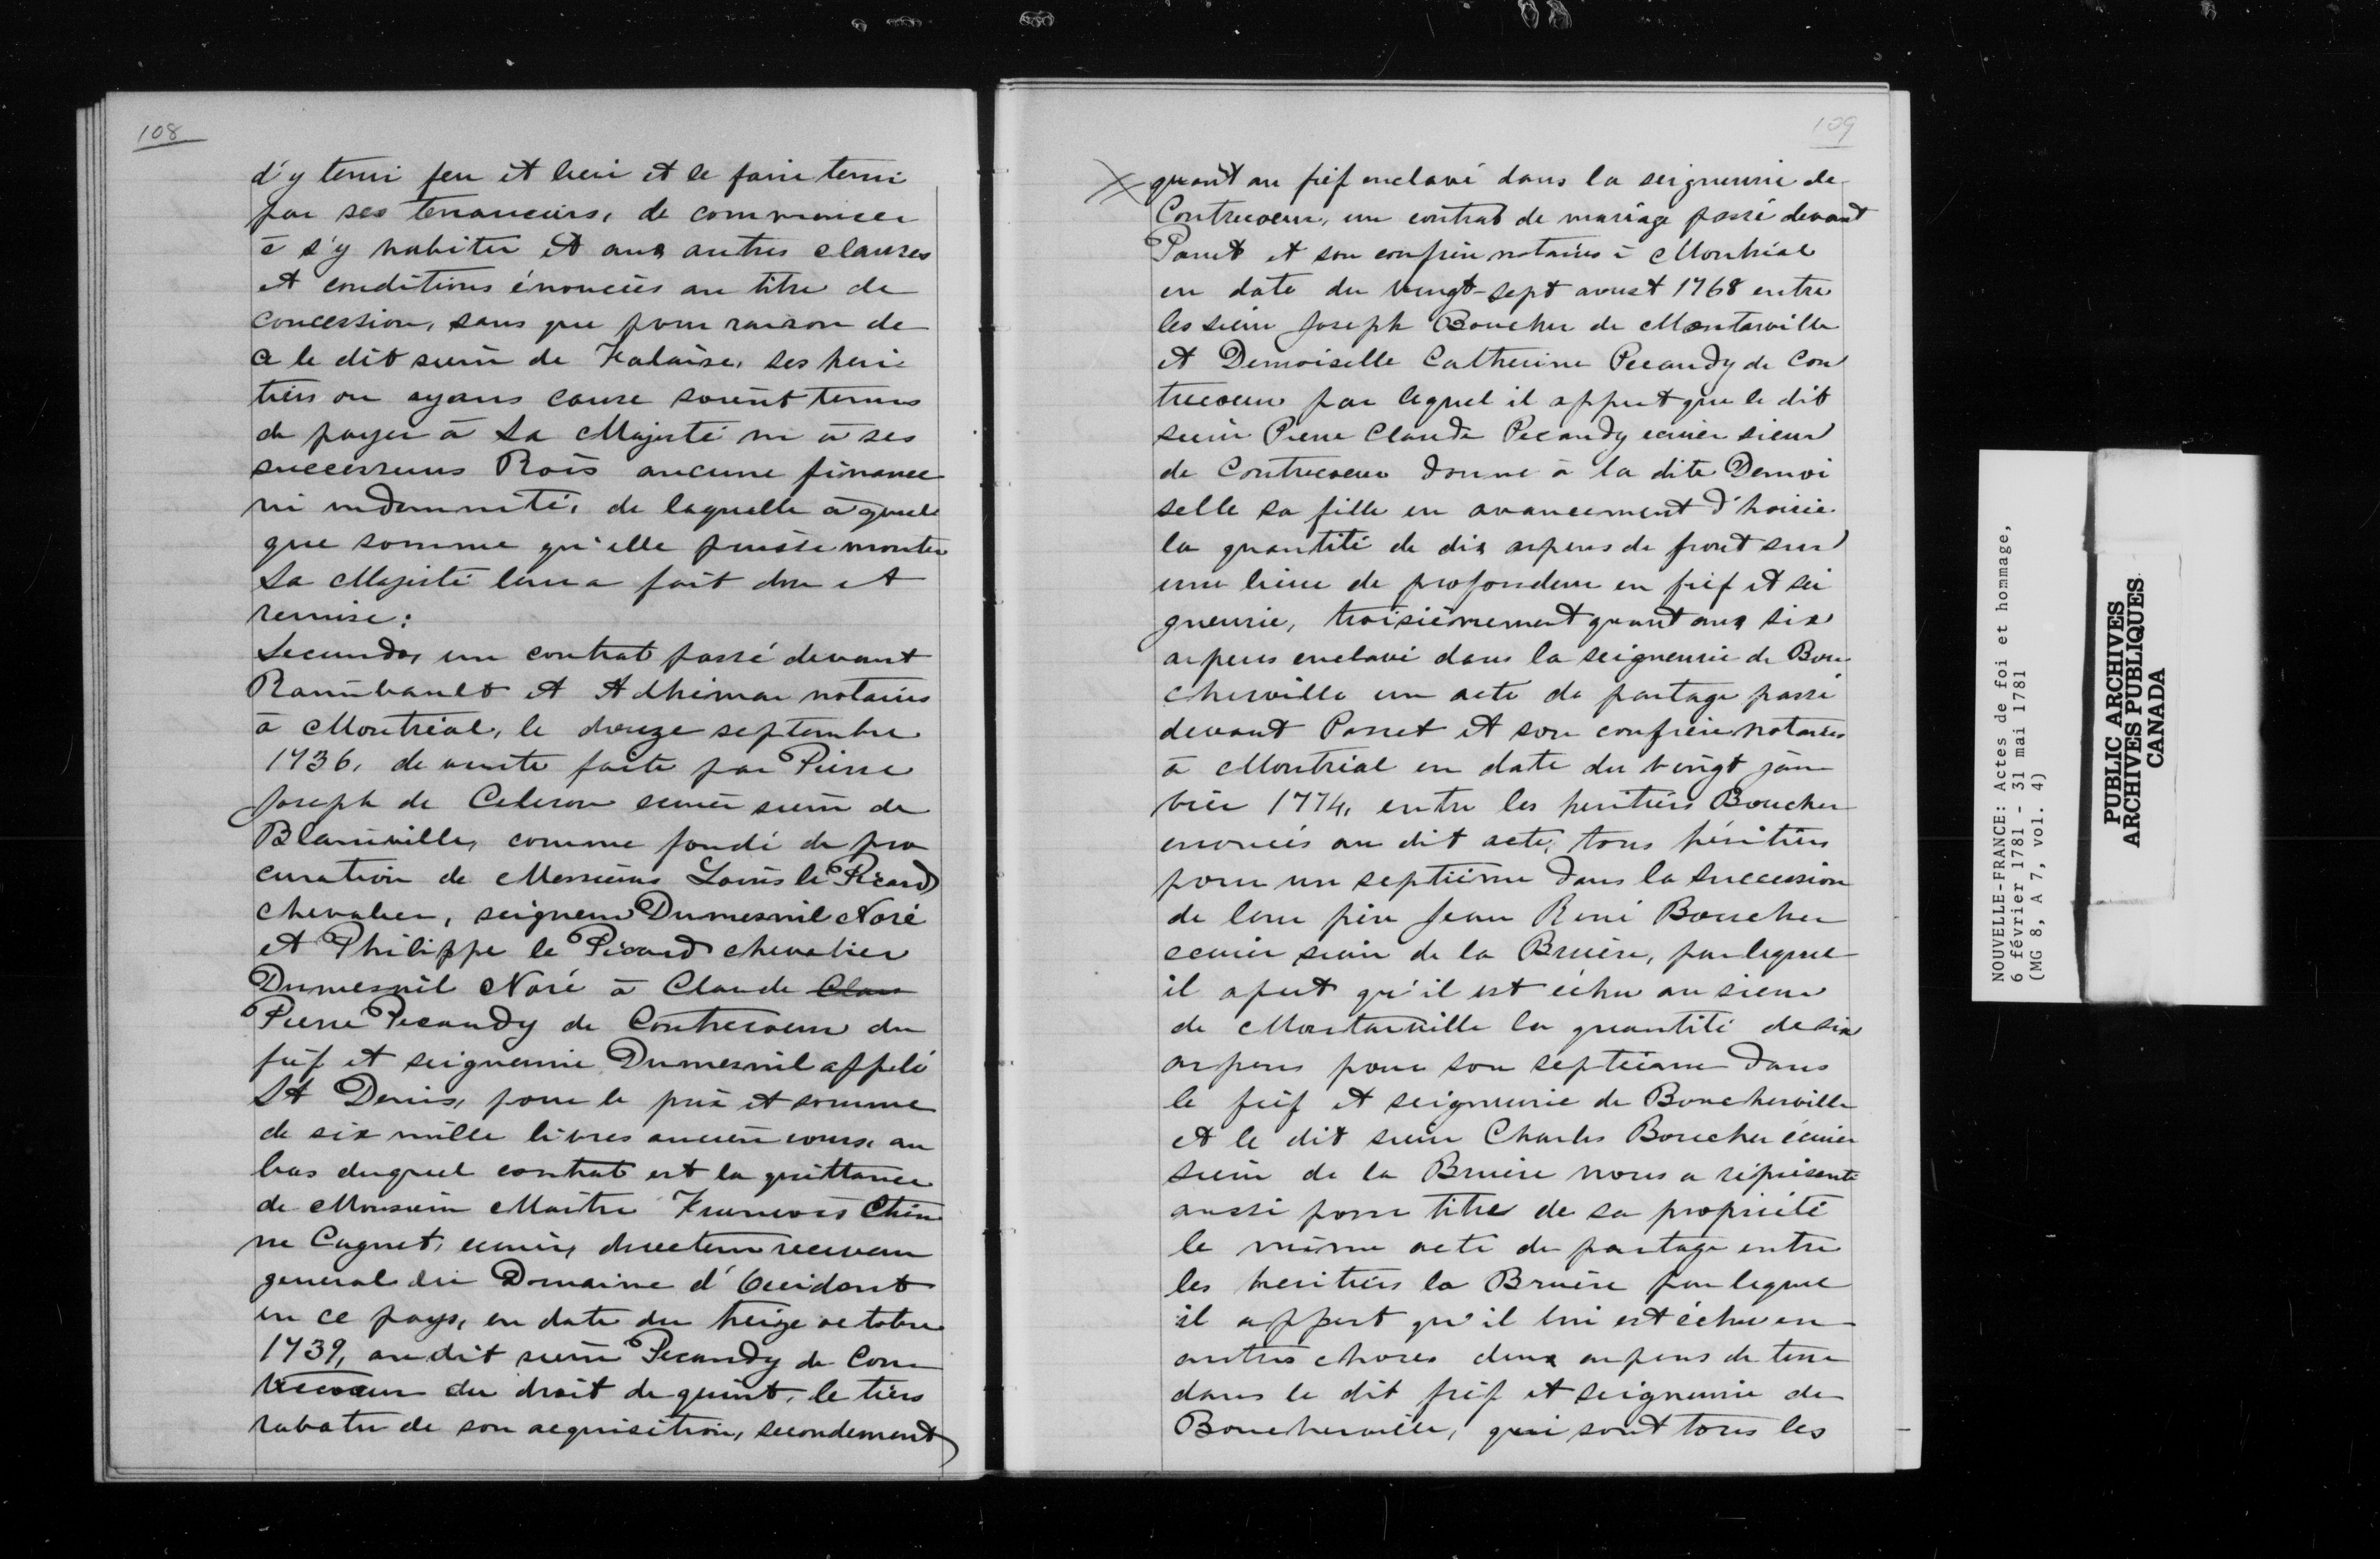 108
d'y tenir feu et lieu et le faire tenir
par ses tenanciers, de commencer
à s'y habiter et aux autres clauses
et conditions énoncées au titre de
concession, sans que pour raison de
ce le dit sieur de Falaise, ses heri
tiers ou ayans cause soient tenus
de payer à Sa Majesté ni à ses
successeurs Rois aucune finance
ni indemnité, de laquelle à quel
que somme qu'elle puisse monter
Sa Majesté leur a fait don et
remise:
Secundo, un contrat passé devant
Raimbault et Adhémar notaires
à Montréal, le douze septembre
1736, de vente faite par Pierre
Joseph de Celeron ecuier sieur de
Blainville, comme fondé de pro
curation de Messieurs Louis le Picard
chevalier, seigneur Dumesnil Noré
et Philippe le Picard chevalier
Dumesnil Noré à Claude Clau
Pierre Pecaudy de Contrecoeur du
fief et seigneurie Dumesnil appelé
St Denis, pour le prix et somme
de six mille livres ancien cours, au
bas duquel contrat est la quittance
de Monsieur Maitre François Etien
ne Cugnet, ecuier, directeur receveur
general du Domaine d'Occident
en ce pays, en date du treize octobre
1739, au dit sieur Pecaudy de Con
trecoeur du droit de quint, le tiers
rabatu de son acquisition, secondement
109
quant au fief enclavé dans la seigneurie de
Contrecoeur, un contrat de mariage passé devant
Panet et son confrère notaires à Montréal
en date du vingt-sept aoust 1768 entre
les sieur Joseph Boucher de Montarville
et Demoiselle Catherine Pecaudy de Con
trecoeur par lequel il appert que le dit
sieur Pierre Claude Pecaudy ecuier sieur
de Contrecoeur donne à la dite Demoi
selle sa fille en avancement d'hoirie
la quantité de dix arpens de front sur
une lieue de profondeur en fief et sei
gneurie, troisièmement quant aux six
arpens enclavé dans la seigneurie de Bou
cherville un acte de partage passé
devant Panet et son confrère notaires
à Montréal en date du vingt jan
vier 1774, entre les heritiers Boucher
enoncés au dit acte, tous héritiers
pour un septième dans la succession
de leur père Jean René Boucher
ecuier sieur de la Bruère, par lequel
il apert qu'il est échu au sieur
de Montarville la quantité de six
arpens pour son septieme dans
le fief et seigneurie de Boucherville
et le dit sieur Charles Boucher écuier
sieur de la Bruère nous a réprésenté
aussi pour titre de sa propriété
le même acte de partage entre
les heritiers la Bruère par lequel
il appert qu'il lui est échu en
autres choses deux arpens de terre
dans le dit fief et seigneurie de
Boucherville, qui sont tous les
NOUVELLE-FRANCE: Actes de foi et hommage,
6 février 1781 - 31 mai 1781
(MG 8, A 7, vol. 4)
PUBLIC ARCHIVES
ARCHIVES PUBLIQUES
CANADA